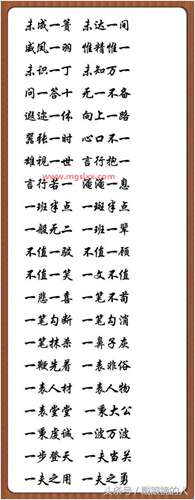 未成一篑 未达一间
威凤一羽 惟精惟一
未识一丁 未知万一
问一答十 无一不备
遐迩一体 向上一路
嚣张一时 心口不一
雄视一世 言行抱一
www.mgslxx.com
言行若一 淹淹一息
一班半点 一斑半点
一般无二 一班一辈
不值一驳 不值一顾
不值一笑 一文不值
一悲一喜 一笔不苟
一笔勾断 一笔勾消
一笔抹杀 一鼻子灰
一鞭先着 一表非俗
一表人材 一表人物
一表堂堂 一秉大公
一秉虔诚 一波万波
一步登天 一夫当关
一夫之用 一夫之勇